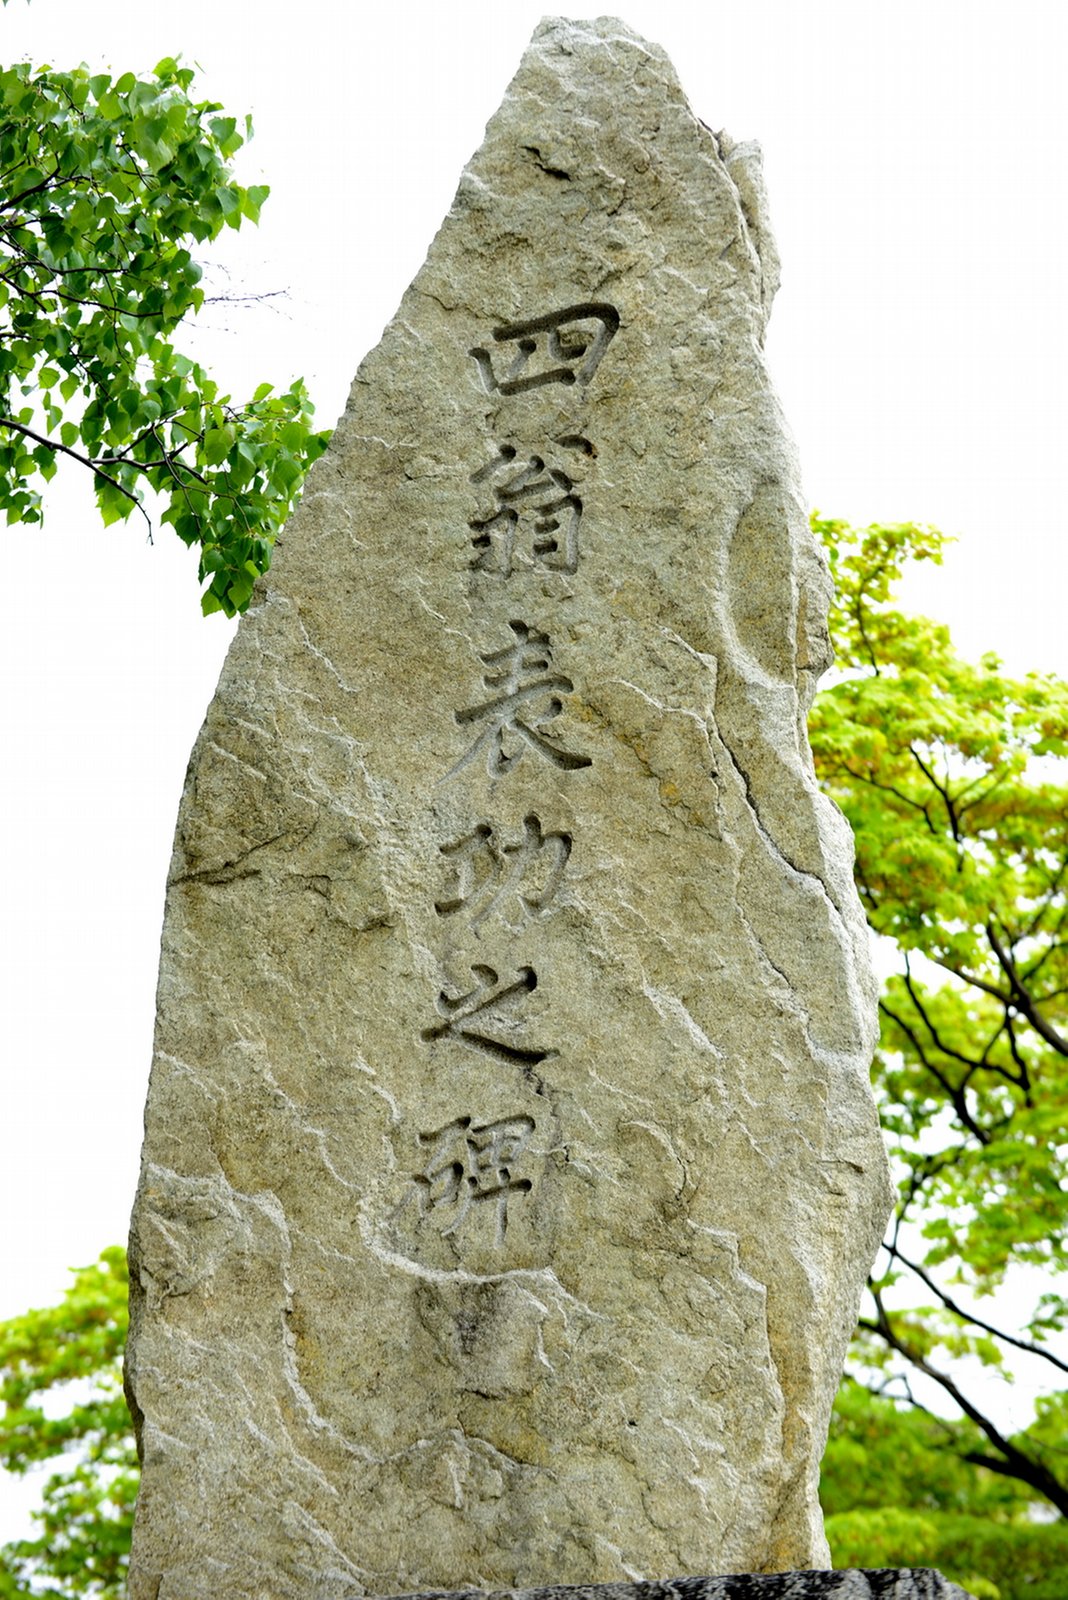 四翁表功之碑